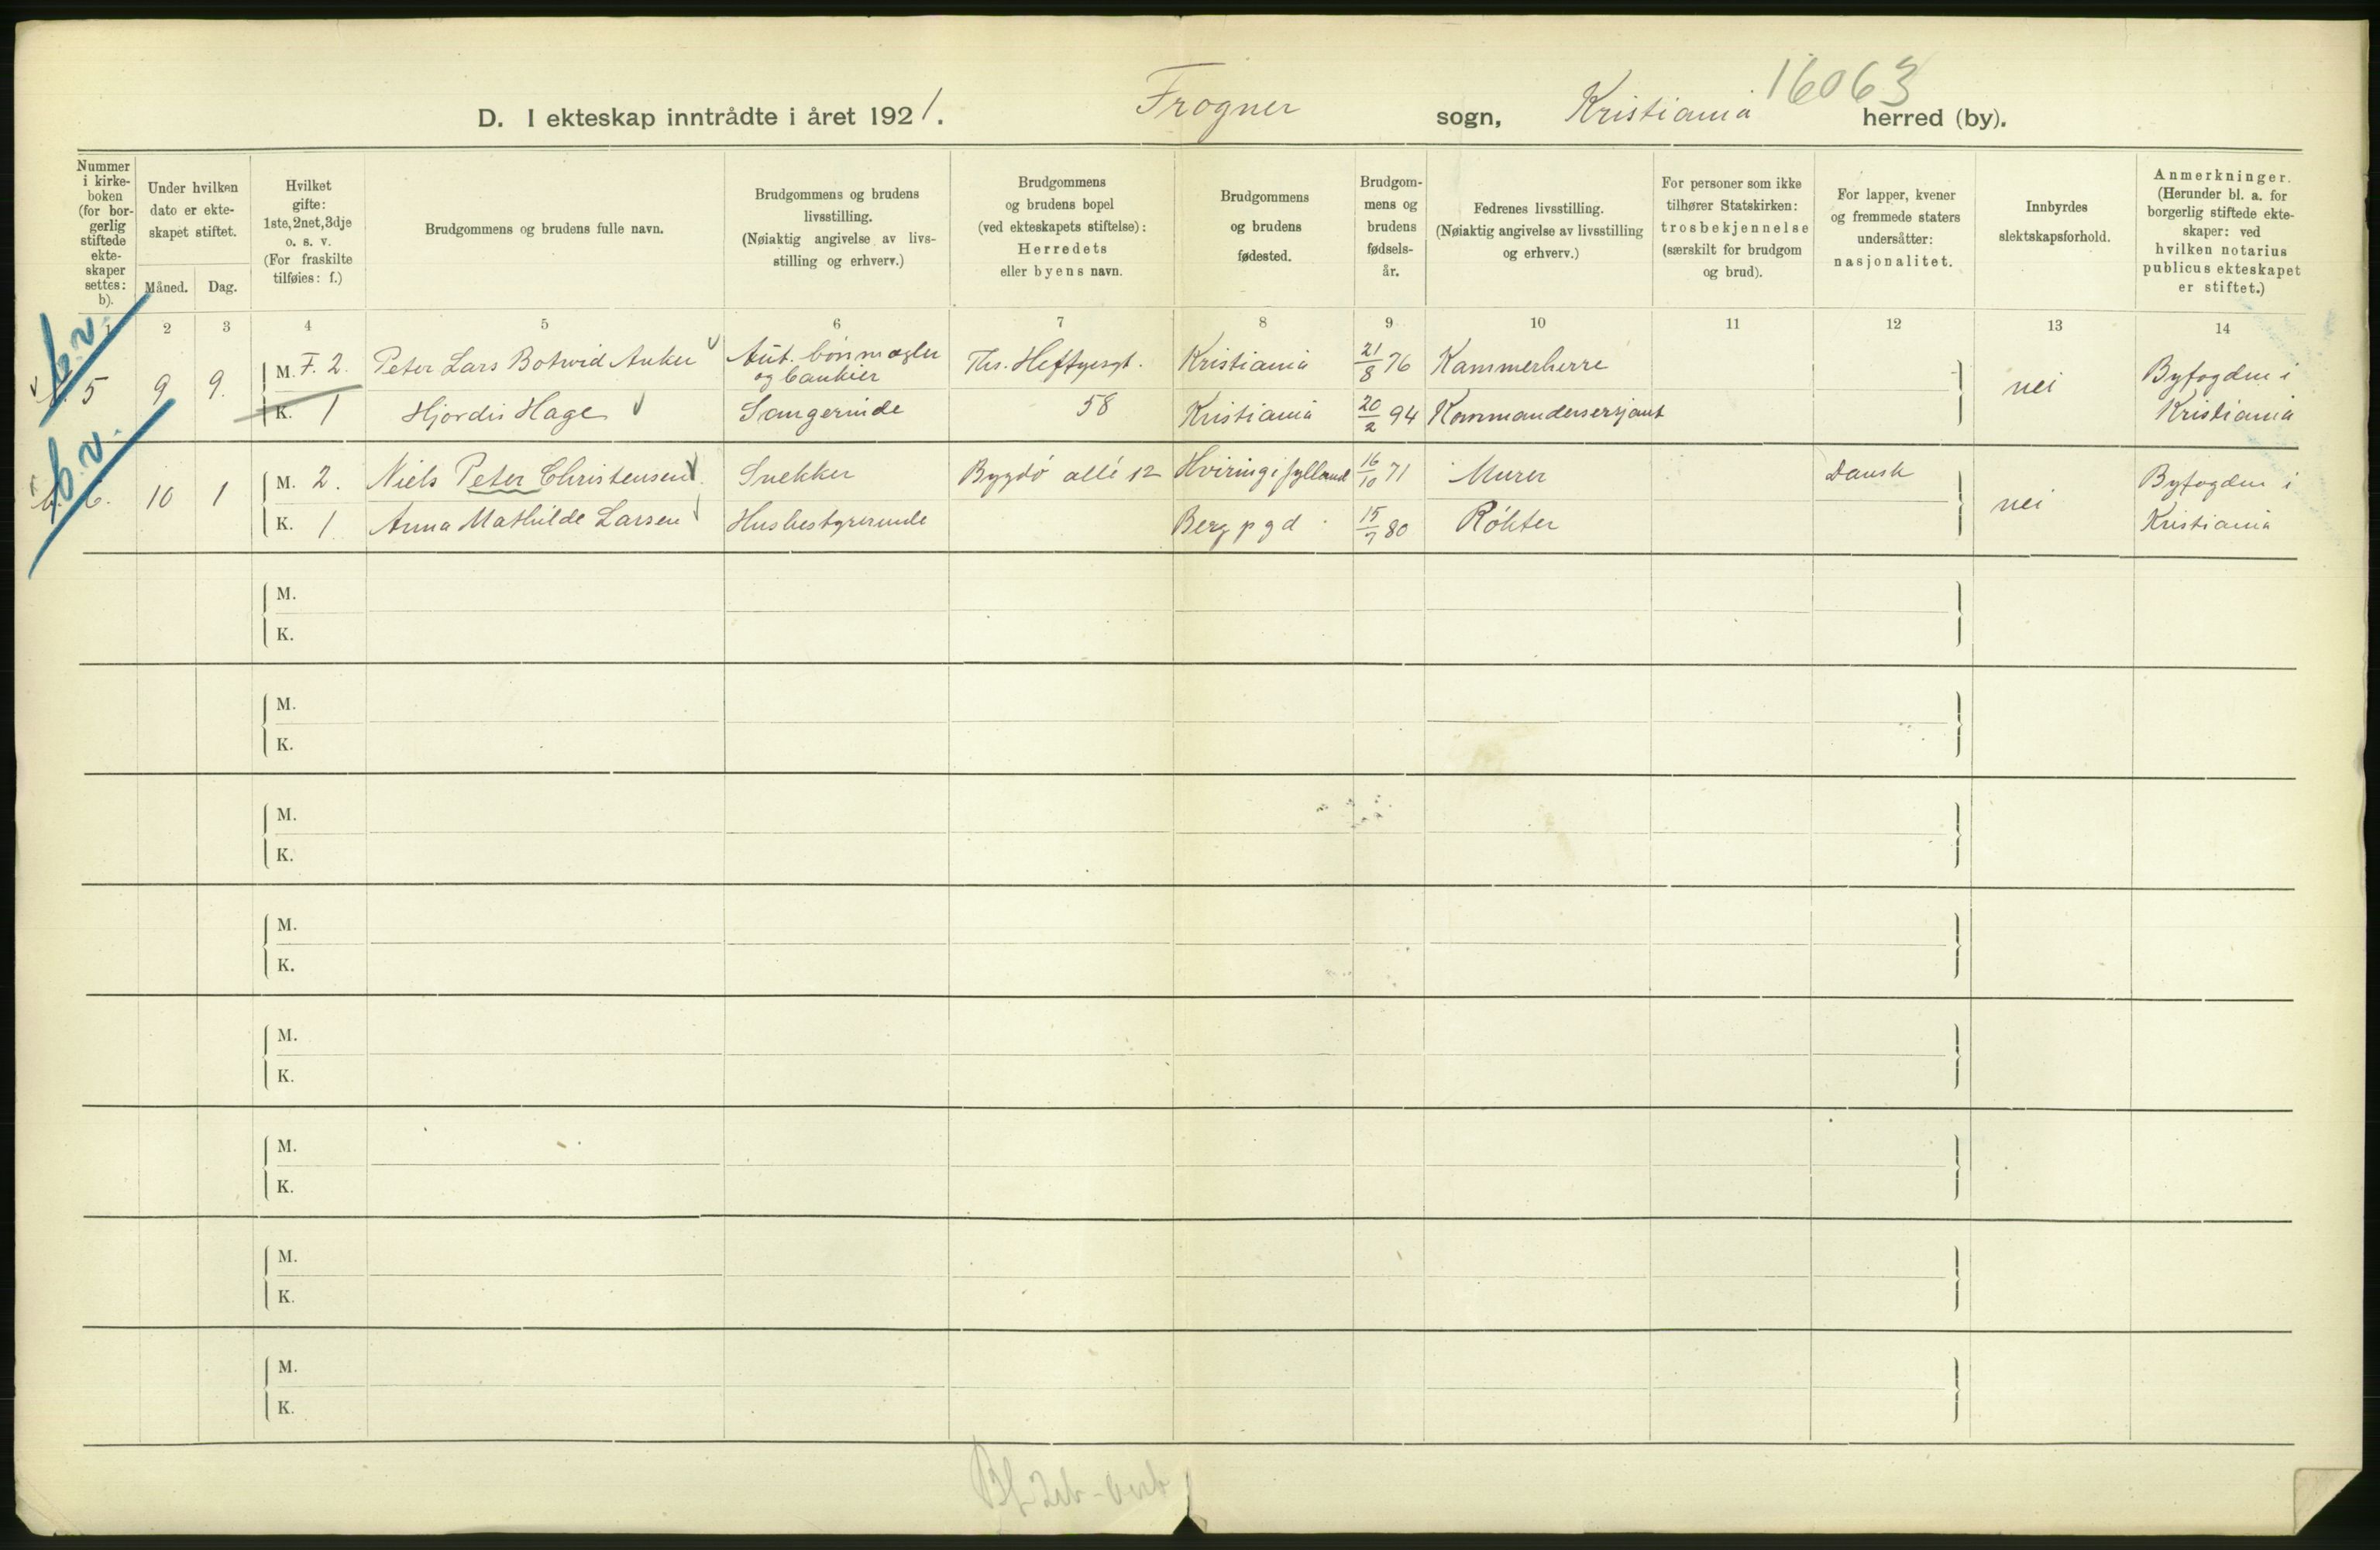 16063
D. I ekteskap inntrådte i året 1921. Frogner sogn, Kristiania herred (by).
Nummer i kirke- boken (for bor- gerlig stiftede ekte- skaper settes: b).
Under hvilken dato er ekte- skapet stiftet.
Måned. Dag.
Hvilket gifte: 1ste, 2net, 3dje o. s. v. (For fraskilte tilføies: f.)
Brudgommens og brudens fulle navn.
Brudgommens og brudens livsstilling. (Nøiaktig angivelse av livs- stilling og erhverv.)
Brudgommens og brudens bopel (ved ekteskapets stiftelse): Herredets eller byens navn.
Brudgommens og brudens fødested.
Brudgom- mens og brudens fødsels- år.
Fedrenes livsstilling. (Nøiaktig angivelse av livsstilling og erhverv.)
For personer som ikke tilhører Statskirken: trosbekjennelse (særskilt for brudgom og brud).
For lapper, kvener og fremmede staters undersåtter: nasjonalitet.
Innbyrdes slektskapsforhold.
Anmerkninger. (Herunder bl. a. for borgerlig stiftede ekte- skaper: ved hvilken notarius publicus ekteskapet er stiftet.)
1 2 3 4 5 6 7 8 9 10 11 12 13 14
b.v.
5 9 9. M. F. 2. Peter Lars Botwid Anker Aut. børsmægler og bankier Ths. Heftyesgt. Kristiania 21/8 76 Kammerherre nei Byfogden i
K. 1 Hjordis Hage Sangerinde 58 Kristiania 20/2 94 Kommandersersjant Kristiania
b.v.
b. 6. 10 1 M. 2. Niels Peter Christensen Snekker Bygdö allé 12 Hviring i Jylland 16/10 71 Murer Dansk nei Byfogden i
K. 1 Anna Mathilde Larsen Husbestyrerinde Berg pgd 15/7 80 Røkter Kristiania
M.
K.
M.
K.
M.
K.
M.
K.
M.
K.
M.
K.
M.
K.
M.
K.